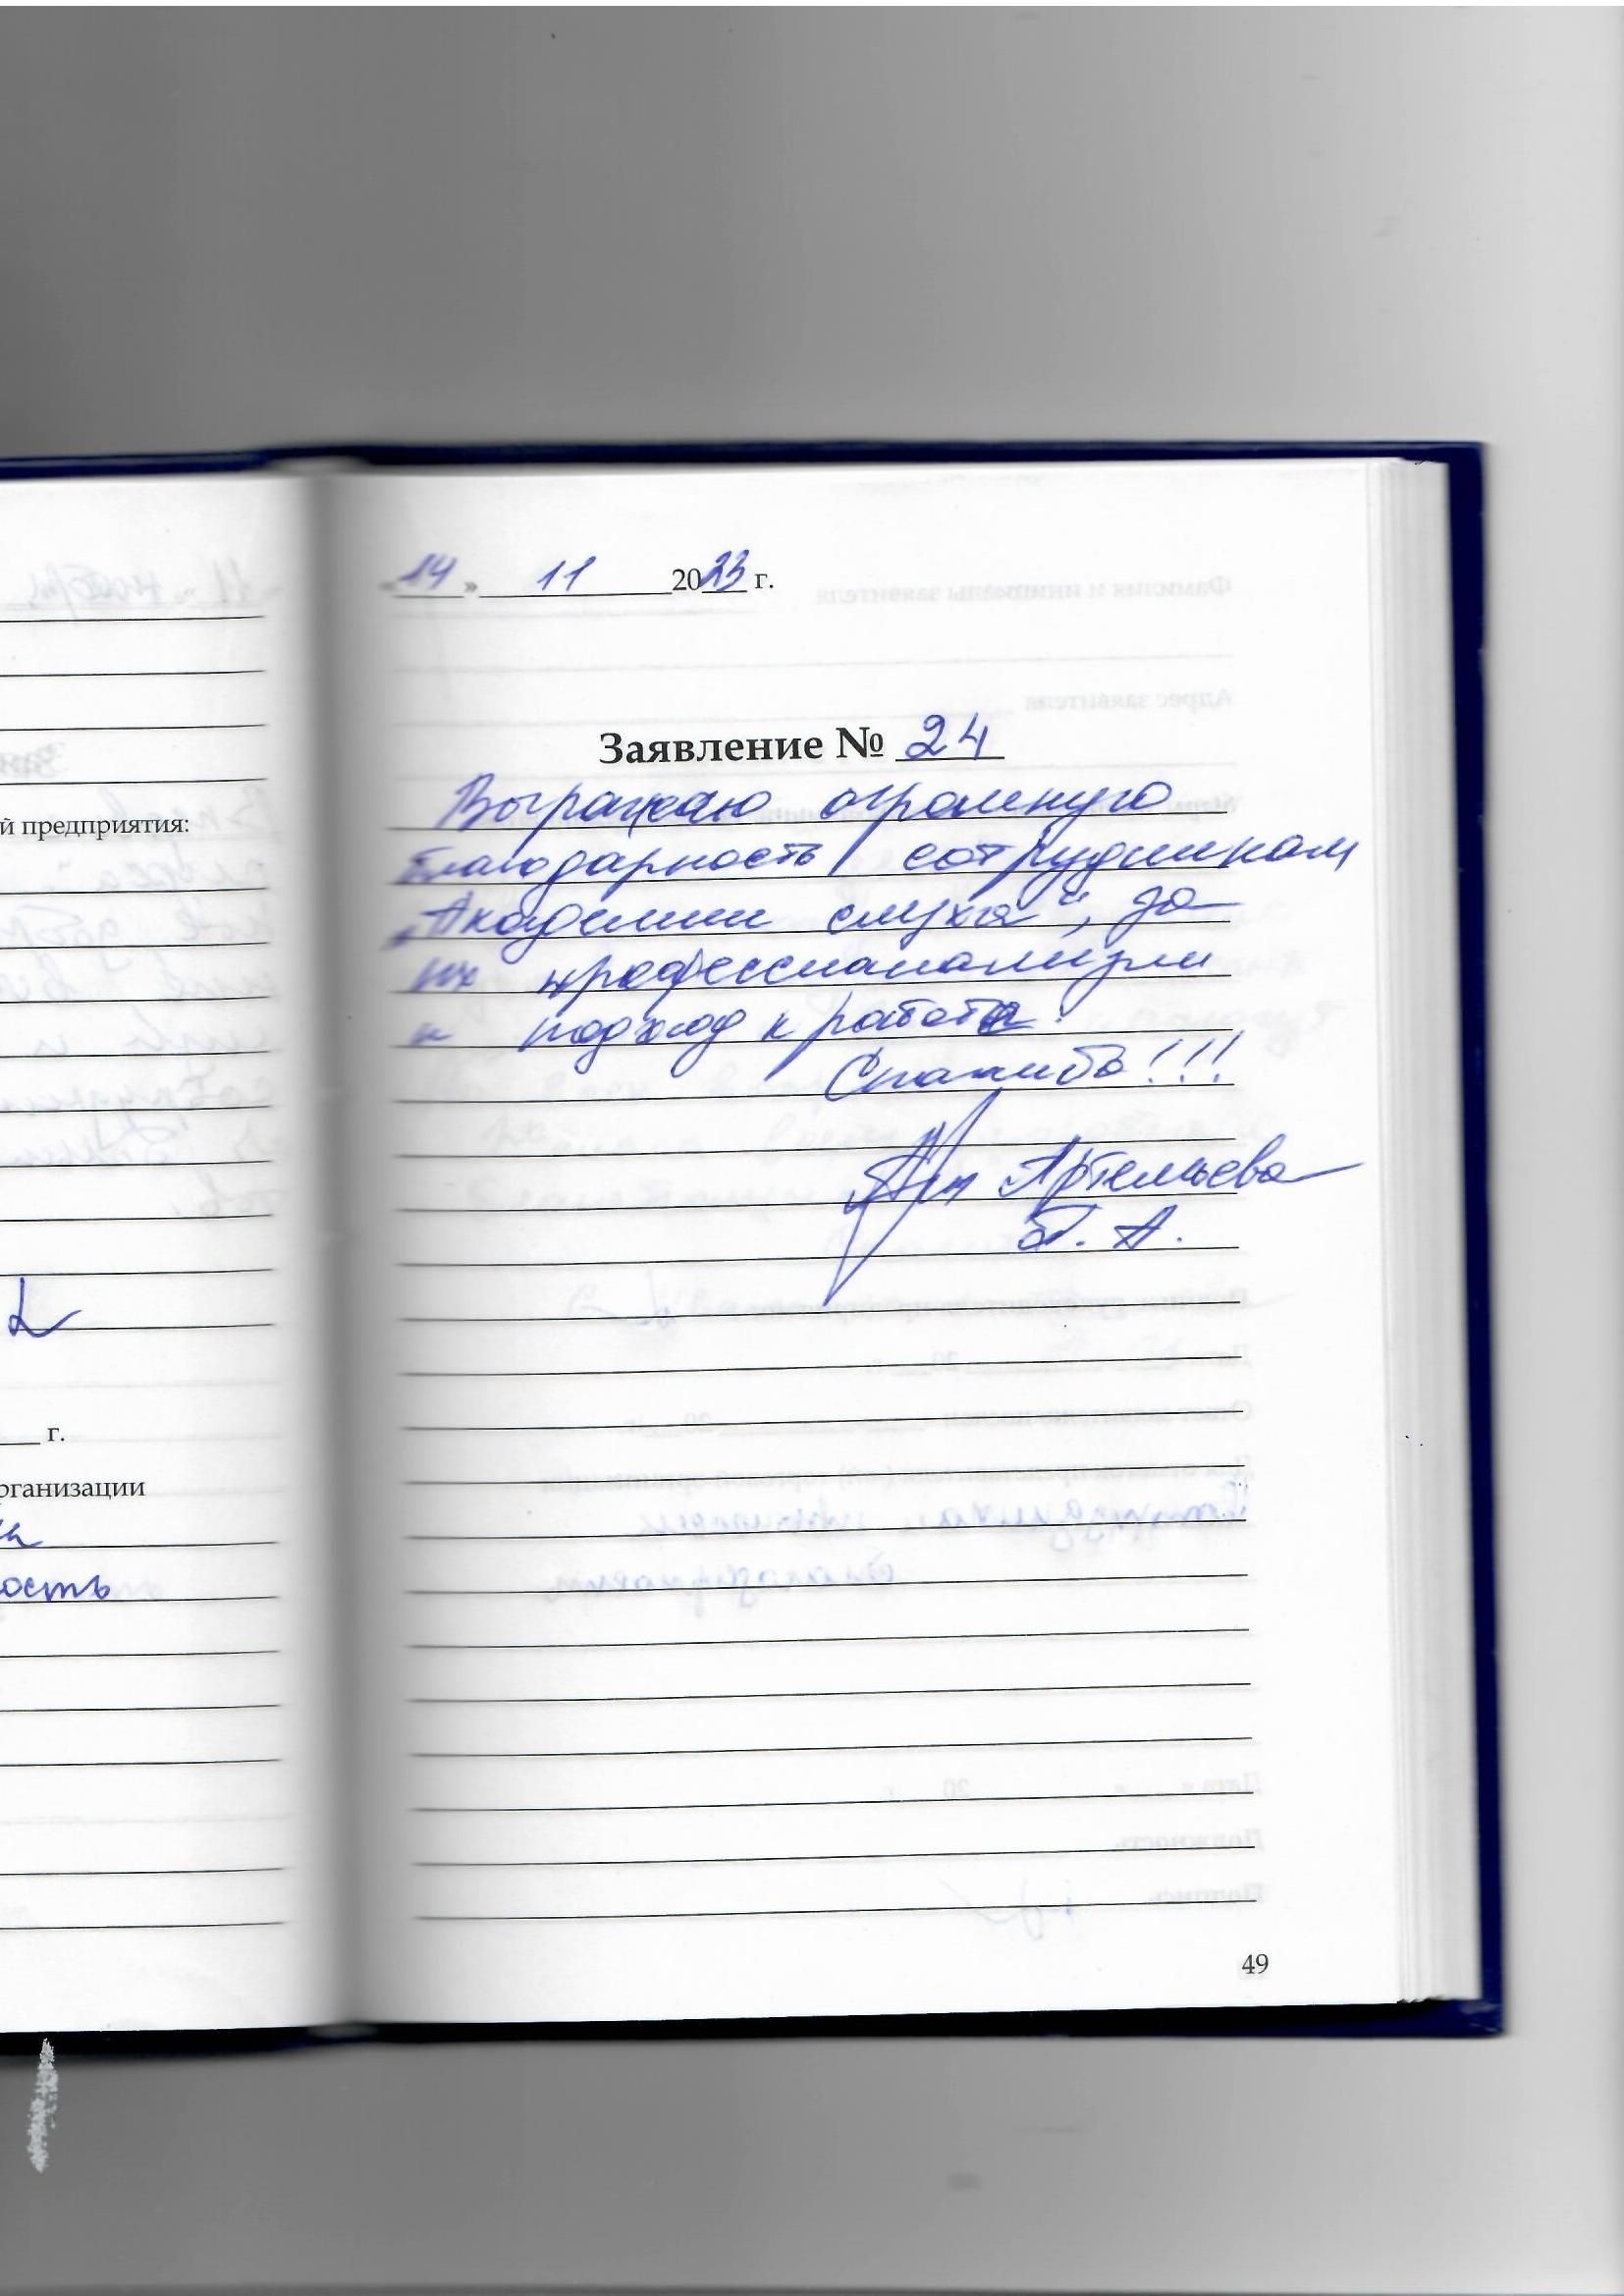 й предприятия:
г.
рганизации
ость
«14» 11 2023 г.
Заявление № 24
Выражаю огромную
благодарность сотрудникам
"Академии слуха", за
их профессионализм
и подход к работе.
Спасибо!!!
Артемьева
А.
49